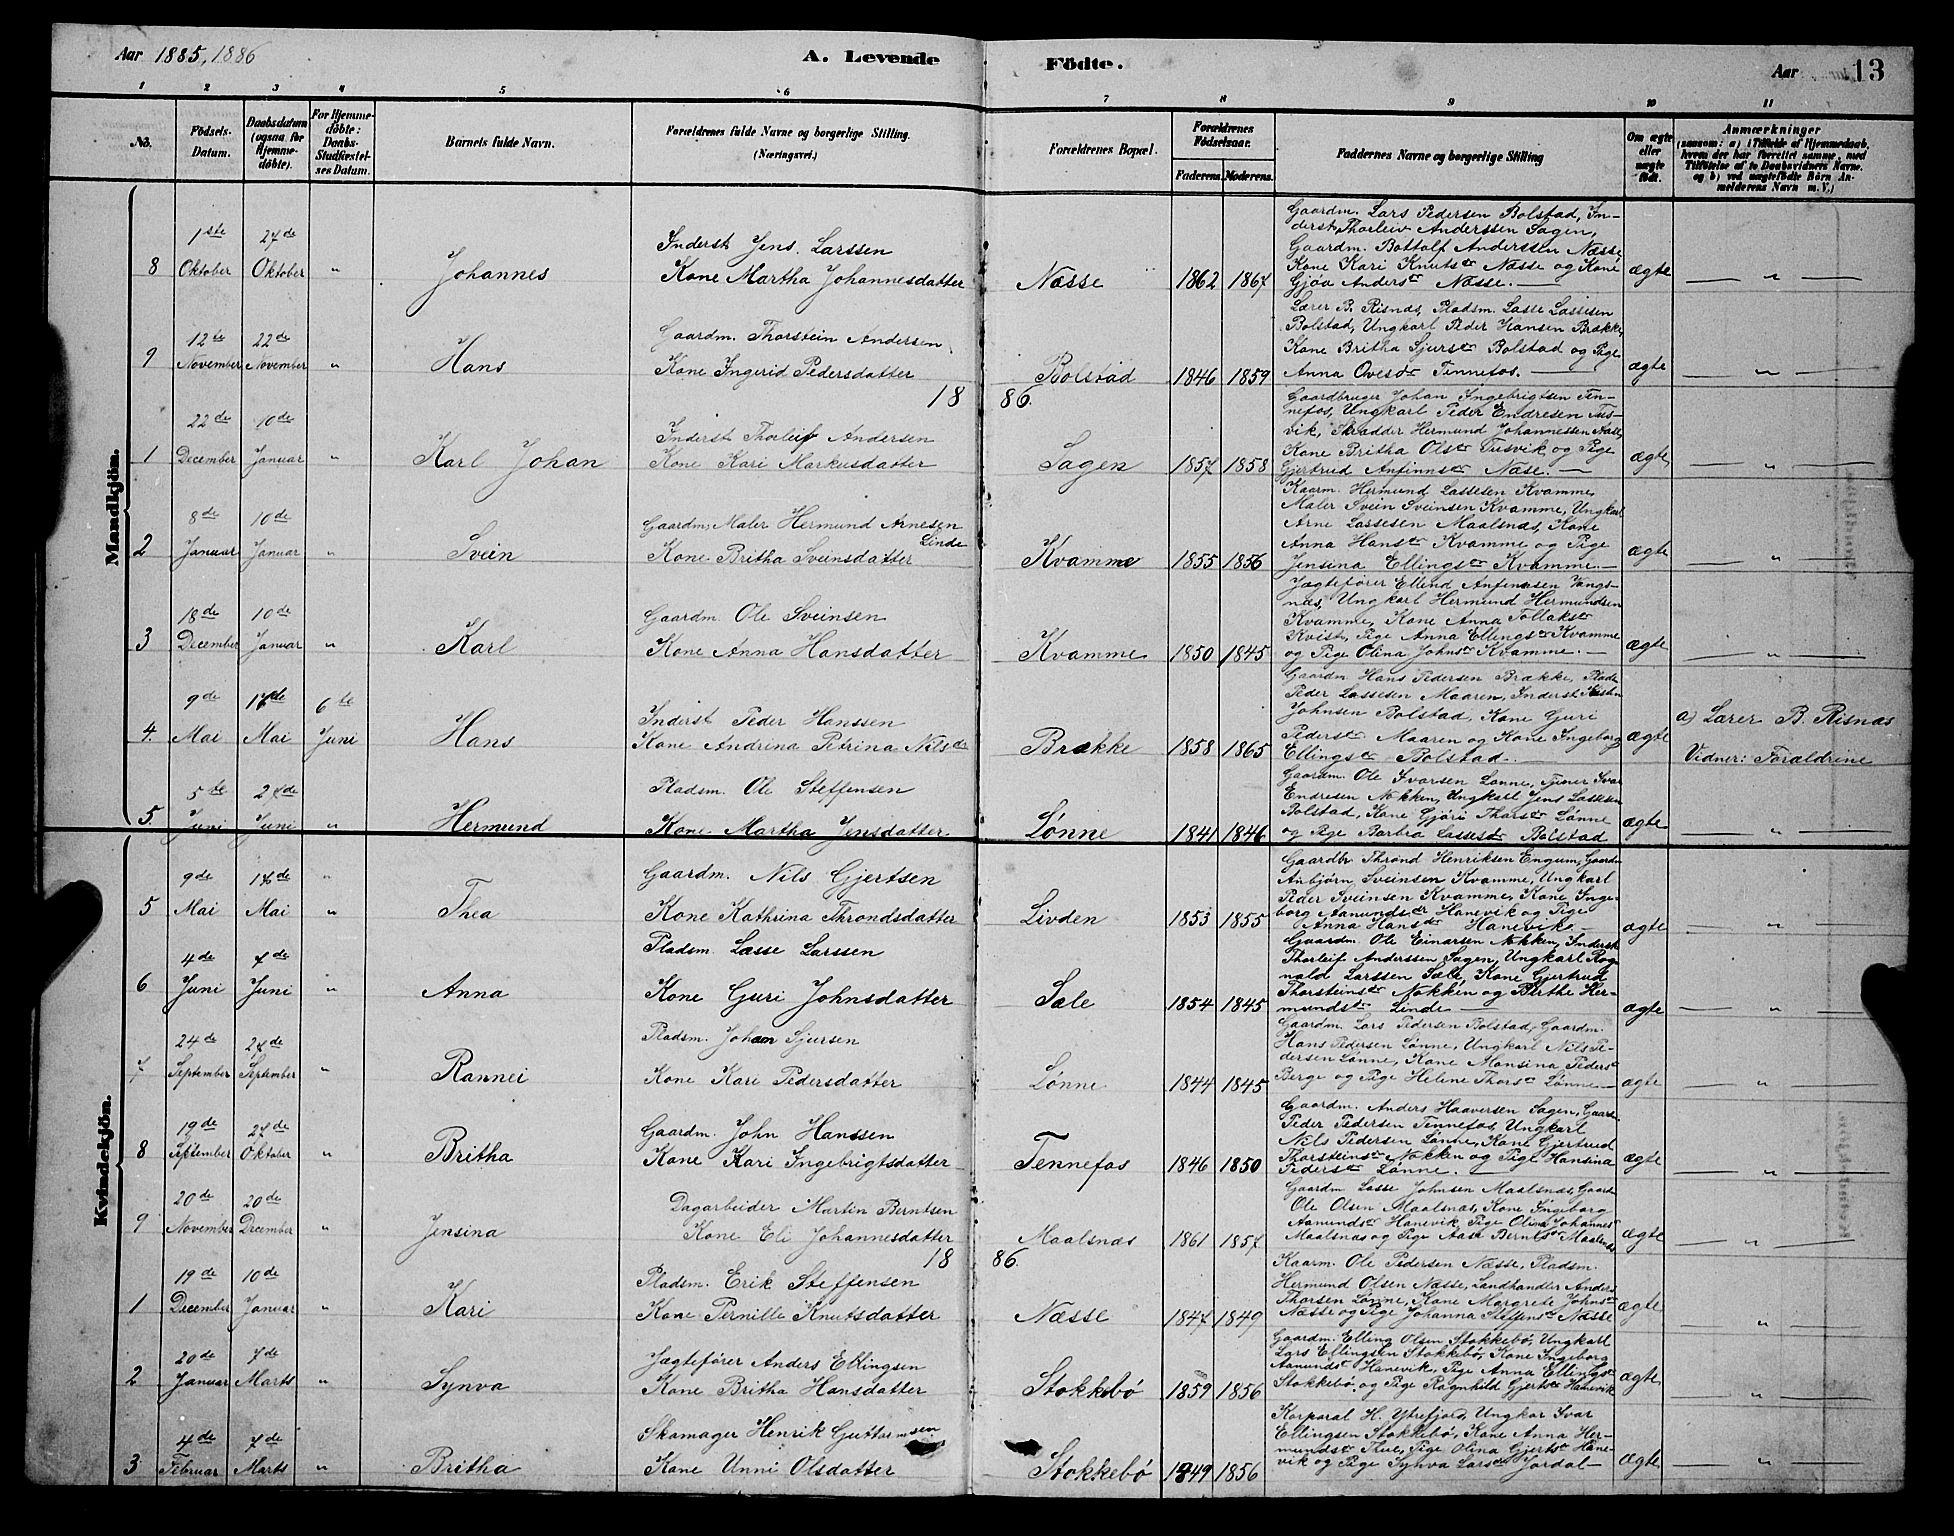 Aar 1885, 1886
A. Levende Födte.
Aar 13
1 2 3 4 5 6 7 8 9 10 11
No. Födsels-Datum. Daabsdatum (ogsaa for Hjemmedöbte). For Hjemmedöbte: Daabs-Stadfæstelses Datum. Barnets fulde Navn. Forældrenes fulde Navne og borgerlige Stilling. (Næringsvei.) Forældrenes Bopæl. Forældrenes Födselsaar. Faderens. Moderens. Faddernes Navne og borgerlige Stilling Om ægte eller uægte födt. Anmærkninger (saasom: a) i Tilfælde af Hjemmedaab, hvem der har forrettet samme, med Tilföielse af to Daabsvidners Navne, og b) ved uægtefödte Börn Anmelderens Navn m. V.)
Mandkjön.
8 1ste Oktober 27de Oktober " Johannes
Inderst Jens Larssen
Kone Martha Johannesdatter
Næsse 1862 1867
Gaardm. Lars Pedersen Bolstad, In-
derst Thorleiv Anderssen Sagen,
Gaardm. Bottolf Anderssen Næsse
Kone Kari Knutsdr Næsse og Kone
Gjøa Andersdr Næsse.
ægte "
9 12te November 22de November " Hans
Gaardm. Thorstein Andersen
Kone Ingerid Pedersdatter
Bolstad 1846 1859
Lærer B. Risnæs, Pladsm. Lasse Lassesen
Bolstad, Ungkarl Peder Hansen Brække,
Kone Britha Sjursdr Bolstad og Pige
Anna Ovesdr Tennefos.
ægte "
1886.
1 22de December 10de Januar " Karl Johan
Inderst Thorleif Andersen
Kone Kari Markusdatter
Sagen 1857 1858
Gaardbruger Johan Ingebrigtsen Ten-
nefos, Ungkarl Peder Endresen Tus-
vik, Skrædder Hermund Johannessen
Kone Britha Olsdr Tusvik og Pige
Gjertrud Anfinnsdr Næse.
ægte "
2 8de Januar 10de Januar " Svein
Gaardm, Maler Hermund Arnesen Linde
Kone Britha Sveinsdatter
Kvamme 1855 1856
Kaarm. Hermund Lassesen Kvamme,
Maler Svein Sveinsen Kvamme, Ungkarl
Arne Lassesen Maalsnæs, Kone
Anna Hansdr Kvamme og Pige
Jensina Ellingsdr Kvamme.
ægte "
3 18de December 10de Januar " Karl
Gaardm. Ole Sveinsen
Kone Anna Hansdatter
Kvamme 1850 1845
Jægtefører Ellend Anfinnsen Vangs-
næs, Ungkarl Hermund Hermundsen
Kvamme, Kone Anna Tollaksdr
Kvist, Pige Anna Ellingsdr Kvamme
og Pige Olina Johnsdr Kvamme.
ægte "
4. 9de Mai 16de Mai 6te Juni Hans
Inderst Peder Hanssen
Kone Andrina Petrina Nilsdr
Brække 1858 1865
Gaardm Hans Pedersen Brække, Pladsm
Peder Lassesen Maaren, Inderst
Johnsen Bolstad, Kone Guri
Pedersdr Maaren og Kone Ingeborg
Ellingsdr Bolstad.
ægte
a) Lærer B. Risnæs
Vidner: Forældrene
5. 5te Juni 27de Juni " Hermund
Pladsm. Ole Steffensen
Kone Martha Jensdatter
Lønne 1841 1846
Gaardm. Ole Ivarsen Lønne, Tjener Ivar
Endresen Nokken, Ungkarl Jens Lassesen
Bolstad, Kone Gjøri Thorsdr Lønne
og Pige Barbra Lassesdr Bolstad
ægte "
Kvindekjön.
5 9de Mai 16de Mai " Thea
Gaardm. Nils Gjertsen
Kone Kathrina Throndsdatter
Livden 1853 1855
Gaardbr Thrond Henriksen Engum, Gaardm
Anbjørn Sveinsen Kvamme, Ungkarl
Peder Sveinsen Kvamme, Kone Inge-
borg Aamundsdr Hanevik og Pige
Anna Hansdr Hanevik.
ægte "
6 4de Juni 7de Juni " Anna
Pladsm. Lasse Larssen
Kone Guri Johnsdatter
Sæle 1854 1845
Gaardm. Ole Einarsen Nokken, Inderst
Thorleif Anderssen Sagen, Ungkarl Rog-
nald Larssen Sæle, Kone Gjertrud
Thorsteinsdr Nokken og Birthe Her-
mundsdr Linde
ægte "
7 24de September 27de September " Rannei
Pladsm. Johan Sjursen
Kone Kari Pedersdatter
Lønne 1844 1845
Gaardm. Lars Pedersen Bolstad, Gaardm.
Hans Pedersen Lønne, Ungkarl Nils Pe-
dersen Lønne, Kone Monsina Pedersdr
Berge og Pige Helene Thorsdr Lønne
ægte "
8 19de September 27de Oktober " Britha
Gaardm. John Hanssen
Kone Kari Ingebrigtsdatter
Tennefos 1846 1850
Gaardm. Anders Haaversen Sagen, Gaardm
Peder Pedersen Tennefos, Ungkarl
Nils Pedersen Lønne, Kone Gjertrud
Thorsteinsdr Nokken og Pige Hansina
Pedersdr Lønne.
ægte "
9 20de November 20de December " Jensina
Dagarbeider Martin Berntsen
Kone Eli Johannesdatter
Maalsnæs 1861 1857
Gaardm Lasse Johnsen Maalsnæs, Gaardm
Ole Olsen Maalsnæs, Kone Ingeborg
Aamundsdr Hanevik, Pige Olina Johannesdr
Maalsnæs og Pige Aase Berntsdr Maalsnæs
ægte "
1886.
1 19de December 10de Januar " Kari
Pladsm. Erik Steffensen
Kone Pernille Knutsdatter
Næsse 1847 1849
Kaarm. Ole Pedersen Næsse, Pladsm.
Hermund Olsen Næsse, Landhandler Anders
Thorsen Lønne, Kone Margrete Johnsdr
Næsse og Pige Johanna Steffensdr Næsse
ægte "
2 20de Januar 7de Marts " Synva
Jægtefører Anders Ellingsen
Kone Britha Hansdatter
Stokkebø 1859 1856
Gaardm. Elling Olsen Stokkebø, Ungkarl
Lars Ellingsen Stokkebø, Kone Ingeborg
Aamundsdr Hanevik, Pige Anna Ellingsdr
Stokkebø og Pige Ragnhild Gjertsdr Hanevik
ægte "
3 4de Februar 7de Marts " Britha
Skomager Henrik Guttormsen
Kone Unni Olsdatter
Stokkebø 1849 1856
Korporal H. Ytrefjord, Ungkar Ivar
Ellingsen Stokkebø, Kone Anna Her-
mundsdr Thue, Pige Olina Gjertsdr Hane-
vik og Pige Synva Larsdr Jordal
ægte "